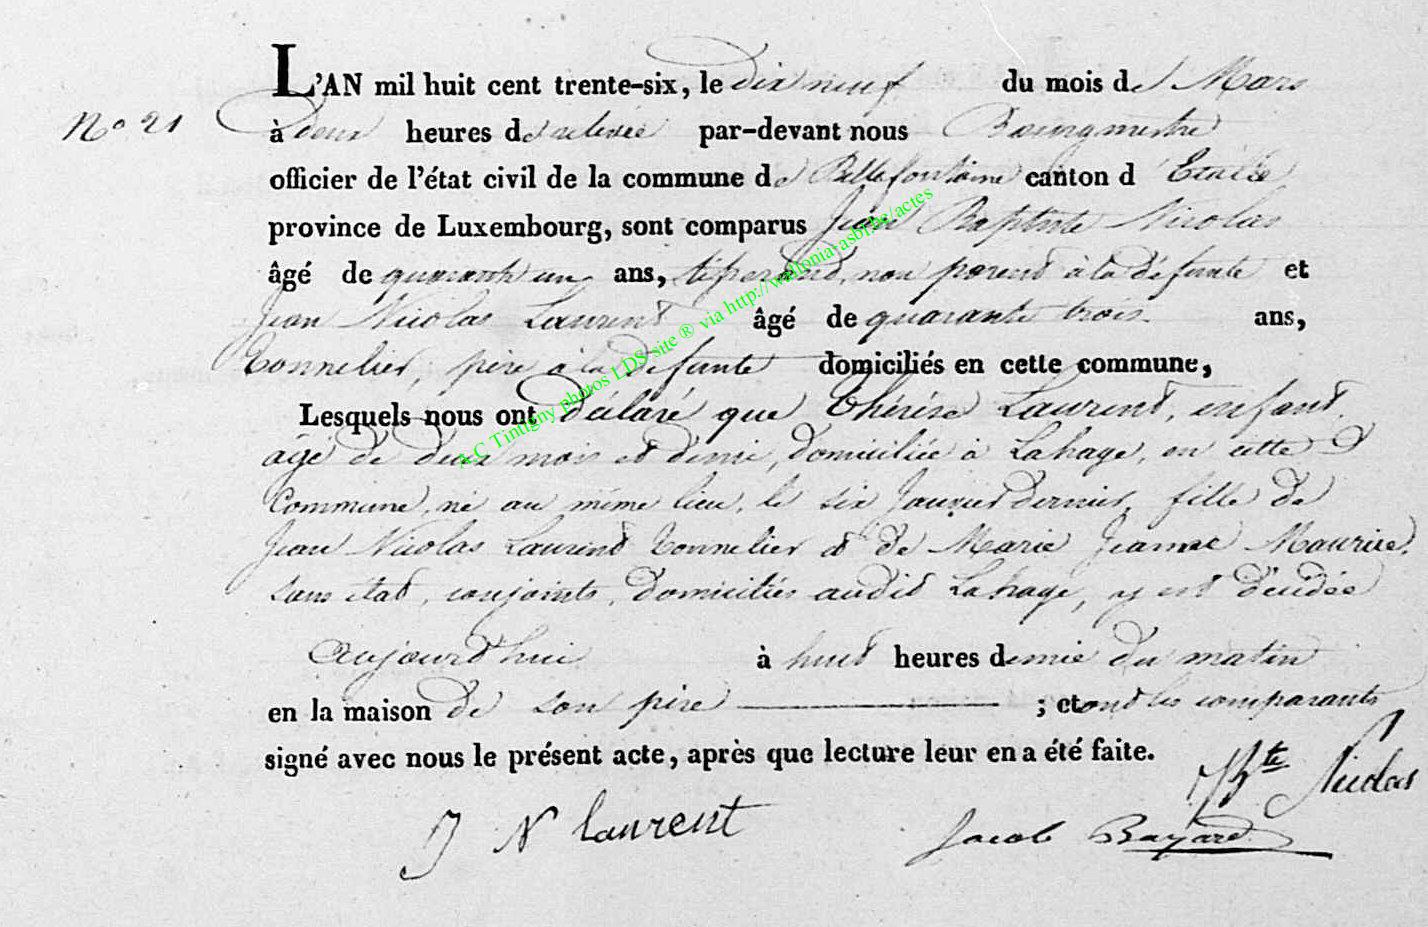 L'AN mil huit cent trente-six, le dix neuf du mois de Mars
N° 21
à deux heures de relevée par-devant nous Bourgmestre
officier de l'état civil de la commune de Bellefontaine canton d'Etalle
province de Luxembourg, sont comparus Jean Baptiste Nicolas
âgé de quarante un ans, tisserand, non parent à la défunte et
Jean Nicolas Laurent âgé de quarante trois ans,
tonnelier, père à la défunte domiciliés en cette commune,
Lesquels nous ont déclaré que Thérèse Laurent, enfant,
âgé de deux mois et demie, domiciliée à Lahage, en cette
Commune, né au même lieu, le six Janvier dernier, fille de
Jean Nicolas Laurent tonnelier et de Marie Jeanne Maurice,
sans état, conjoints, domiciliés audit Lahage, y est décédée
aujourd'hui à huit heures demie du matin
en la maison de son père ; et ont les comparants
signé avec nous le présent acte, après que lecture leur en a été faite.
JBte Nicolas
J N laurent
Jacob Bayard
A-C Tintigny photos LDS-site ® via http://wallonia-asbl.be/actes